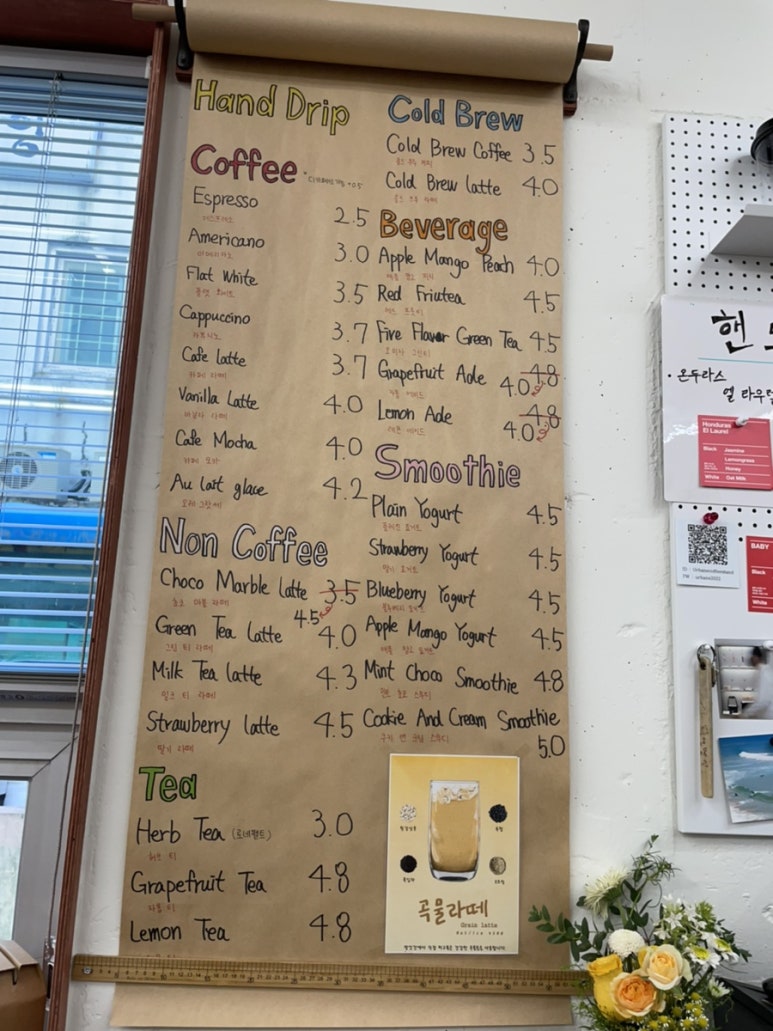 Hand Drip
Coffee
Espresso 2.5
에스프레소
Americano 3.0
아메리카노
Flat White 3.5
플랫 화이트
Cappuccino 3.7
카푸치노
Cafe latte 3.7
카페 라떼
Vanilla Latte 4.0
바닐라 라떼
Cafe Mocha 4.0
카페 모카
Au lait glace 4.2
오레 그랏세
Non Coffee
Choco Marble latte 3.5
4.5
초코 마블 라떼
Green Tea Latte 4.0
그린 티 라떼
Milk Tea latte 4.3
밀크 티 라떼
Strawberry latte 4.5
딸기 라떼
Tea
Herb Tea (로네펠트) 3.0
허브 티
Grapefruit Tea 4.8
자몽 티
Lemon Tea 4.8
Cold Brew
Cold Brew Coffee 3.5
콜드 브루 커피
Cold Brew latte 4.0
콜드 브루 라떼
Beverage
Apple Mango Peach 4.0
애플 망고 피치
Red Friutea 4.5
레드 프룻티
Five Flavor Green Tea 4.5
오미자 그린티
Grapefruit Ade 4.8
4.0
자몽 에이드
Lemon Ade 4.8
4.0
레몬 에이드
Smoothie
Plain Yogurt 4.5
플레인 요거트
Strawberry Yogurt 4.5
딸기 요거트
Blueberry Yogurt 4.5
블루베리 요거트
Apple Mango Yogurt 4.5
애플 망고 요거트
Mint Choco Smoothie 4.8
민트 초코 스무디
Cookie And Cream Smoothie
쿠키 앤 크림 스무디
5.0
곡물라떼
Grain latte
핸드
온두라스
엘 라우렐
Honduras
El Laurel
Black Jasmine
Lemongrass
Honey
White Oat Milk
BABY
Black
White